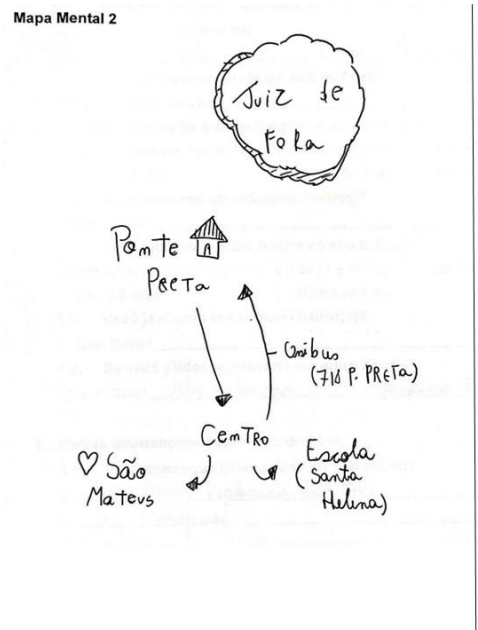 Mapa Mental 2
Juiz de
Fora
Ponte
Preta
Ônibus
(710 P. PRETA)
CENTRO
São
Mateus
Escola
(Santa
Helena)